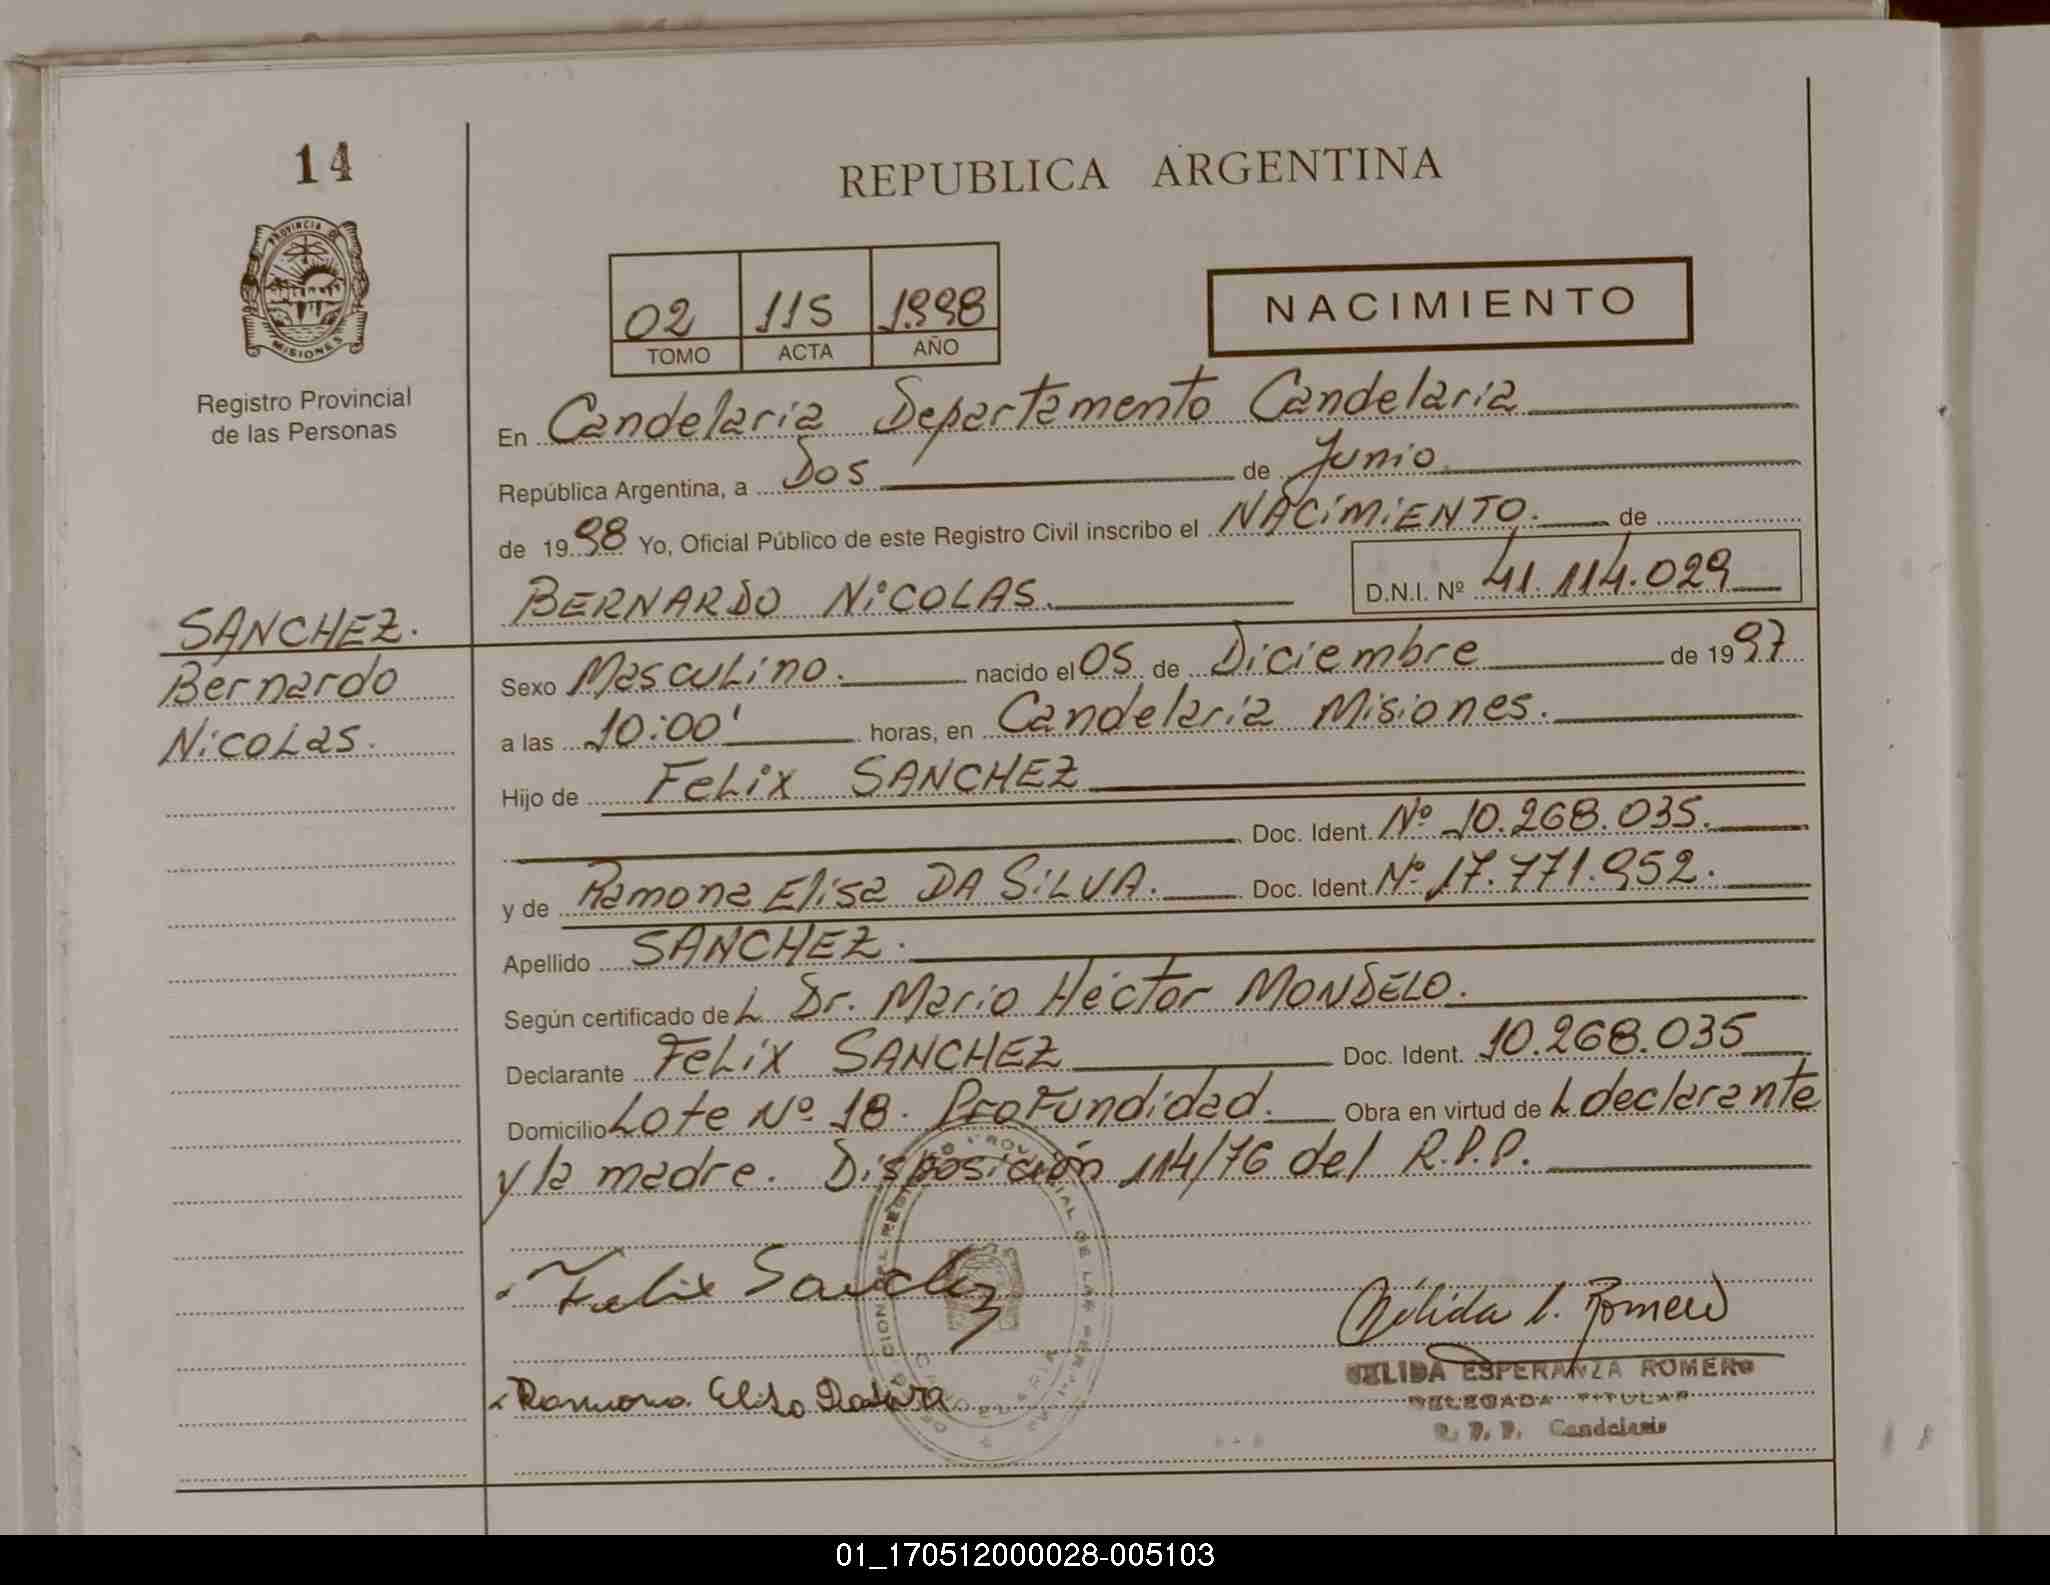 14
REPUBLICA ARGENTINA
PROVINCIA DE
MISIONES
Registro Provincial
de las Personas
02 115 1998
TOMO ACTA AÑO
NACIMIENTO
En Candelaria Departamento Candelaria
República Argentina, a Dos de Junio
de 1998 Yo, Oficial Público de este Registro Civil inscribo el NACIMIENTO. de
BERNARDO NICOLAS. D.N.I. Nº 41.114.029
SANCHEZ.
Bernardo
Nicolas.
Sexo Masculino. nacido el 05 de Diciembre de 1997
a las 10:00' horas, en Candelaria Misiones.
Hijo de Felix SANCHEZ
Doc. Ident. Nº 10.268.035.
y de Ramona Elisa DA SILVA. Doc. Ident. Nº 17.771.952.
Apellido SANCHEZ.
Según certificado de L Dr. Mario Héctor MONDELO.
Declarante Felix SANCHEZ Doc. Ident. 10.268.035
Domicilio Lote Nº 18. Profundidad. Obra en virtud de L declarante
y la madre. Disposición 114/76 del R.P.P.
Felix Sanchez
Nélida E. Romero
NELIDA ESPERANZA ROMERO
DELEGADA TITULAR
R. P. P. Candelaria
Ramona Elisa Dasilva
01_170512000028-005103